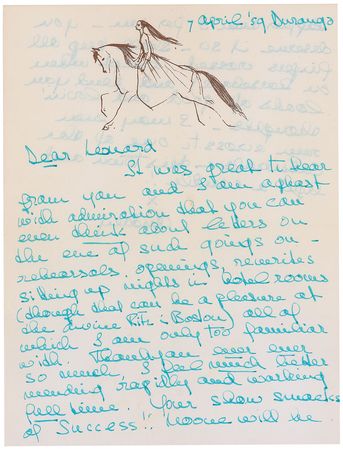 7 April '59 Durango
Dear Leonard
It was great to hear
from you and I am aghast
with admiration that you can
even think about letters on
the eve of such goings on –
rehearsals, openings, rewrites
sitting up nights in hotel rooms
(though that can be a pleasure at
the divine Ritz in Boston) all of
which I am only too familiar
with. Thank you ever ever
so much, I feel much better
mending rapidly and working
full time. Your show smacks
of Success!! No one will be